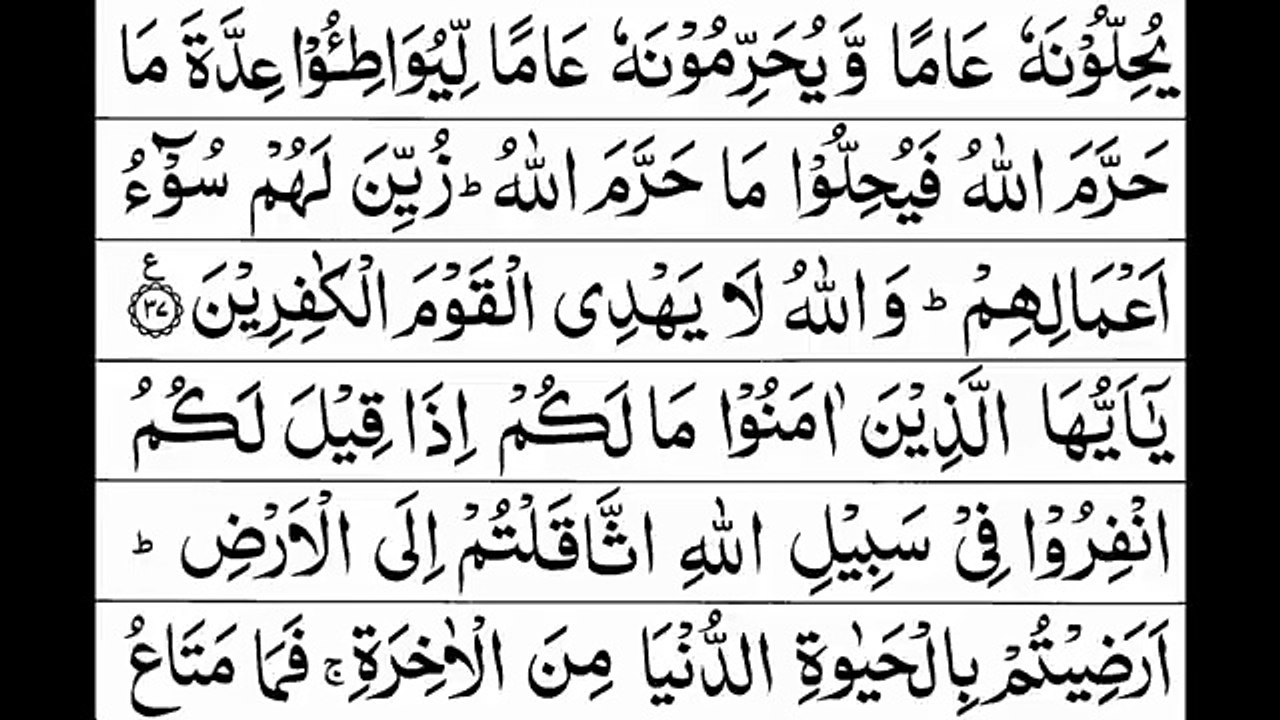 یُحِلُّوْنَهٗ عَامًا وَّ یُحَرِّمُوْنَهٗ عَامًا لِّیُوَاطِـُٔوْا عِدَّةَ مَا
حَرَّمَ اللّٰهُ فَیُحِلُّوْا مَا حَرَّمَ اللّٰهُؕ زُیِّنَ لَهُمْ سُوْٓءُ
اَعْمَالِهِمْؕ وَ اللّٰهُ لَا یَهْدِی الْقَوْمَ الْكٰفِرِیْنَ ﴿۳۷﴾ ع
یٰۤاَیُّهَا الَّذِیْنَ اٰمَنُوْا مَا لَكُمْ اِذَا قِیْلَ لَكُمُ
انْفِرُوْا فِیْ سَبِیْلِ اللّٰهِ اثَّاقَلْتُمْ اِلَی الْاَرْضِؕ
اَرَضِیْتُمْ بِالْحَیٰوةِ الدُّنْیَا مِنَ الْاٰخِرَةِۚ فَمَا مَتَاعُ